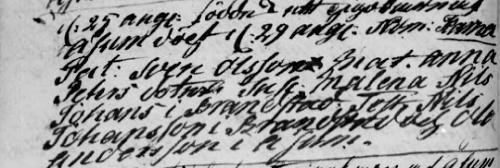 d: 25 aug: föddes ett
Åsum döpt d: 29 aug: Nom: Anna
Pat: Sven Olsson Mat. anna
Pehrs dotter Susc. Malena Nils
Johans i Brandstad Test. Nils
Johansson i Brandstad och Ola
Andersson i Åsum.